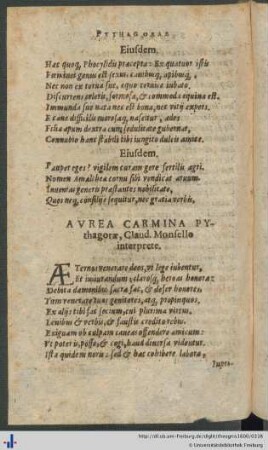 PYTHAGORAE
Eiusdem.
Hac quoq, Phocylidis praecepta: Ex quatuor istis
Foeminei genus est sexus: canibusq, apibusq,
Nec non ex torua sue, equo ceruice iubato.
Discurrens celeris, formosa, & commoda equina est.
Immunda sus nata nec est bona, nec vitij expers.
E cane difficilis morosaq, nascitur, ades
Filia apum dextra cum sedulitate gubernat,
Connubio hanc stabili tibi iungito dulcis amice.
Eiusdem.
Pauper eges? vigilem curam gere fertilis agri.
Nomen Amalthea cornu sibi vendicat aruum.
Inuenias generis praestantes nobilitate,
Quos neq, consilijs sequitur, nec gratia verbis.
AVREA CARMINA PY-
thagorae, Claud. Monsello
interprete.
ÆTernos venerare deos, vt lege iubentur,
Et iusiurandum: clarosq, heroas honora:
Debita daemonibus sacra fac, & defer honores.
Tum venerare tuos genitores, atq, propinquos,
Ex alijs tibi fac socium, cui plurima virtus.
Lenibus & verbis, & faustis credito rebus.
Exiguam ob culpam caueas offendere amicum:
Vt poteris, posse, & cogi, haud diuersa videntur.
Ista quidem noris: sed & hac cohibere labora,
Inpri-
http://dl.ub.uni-freiburg.de/diglit/theognis1600/0338
© Universitätsbibliothek Freiburg